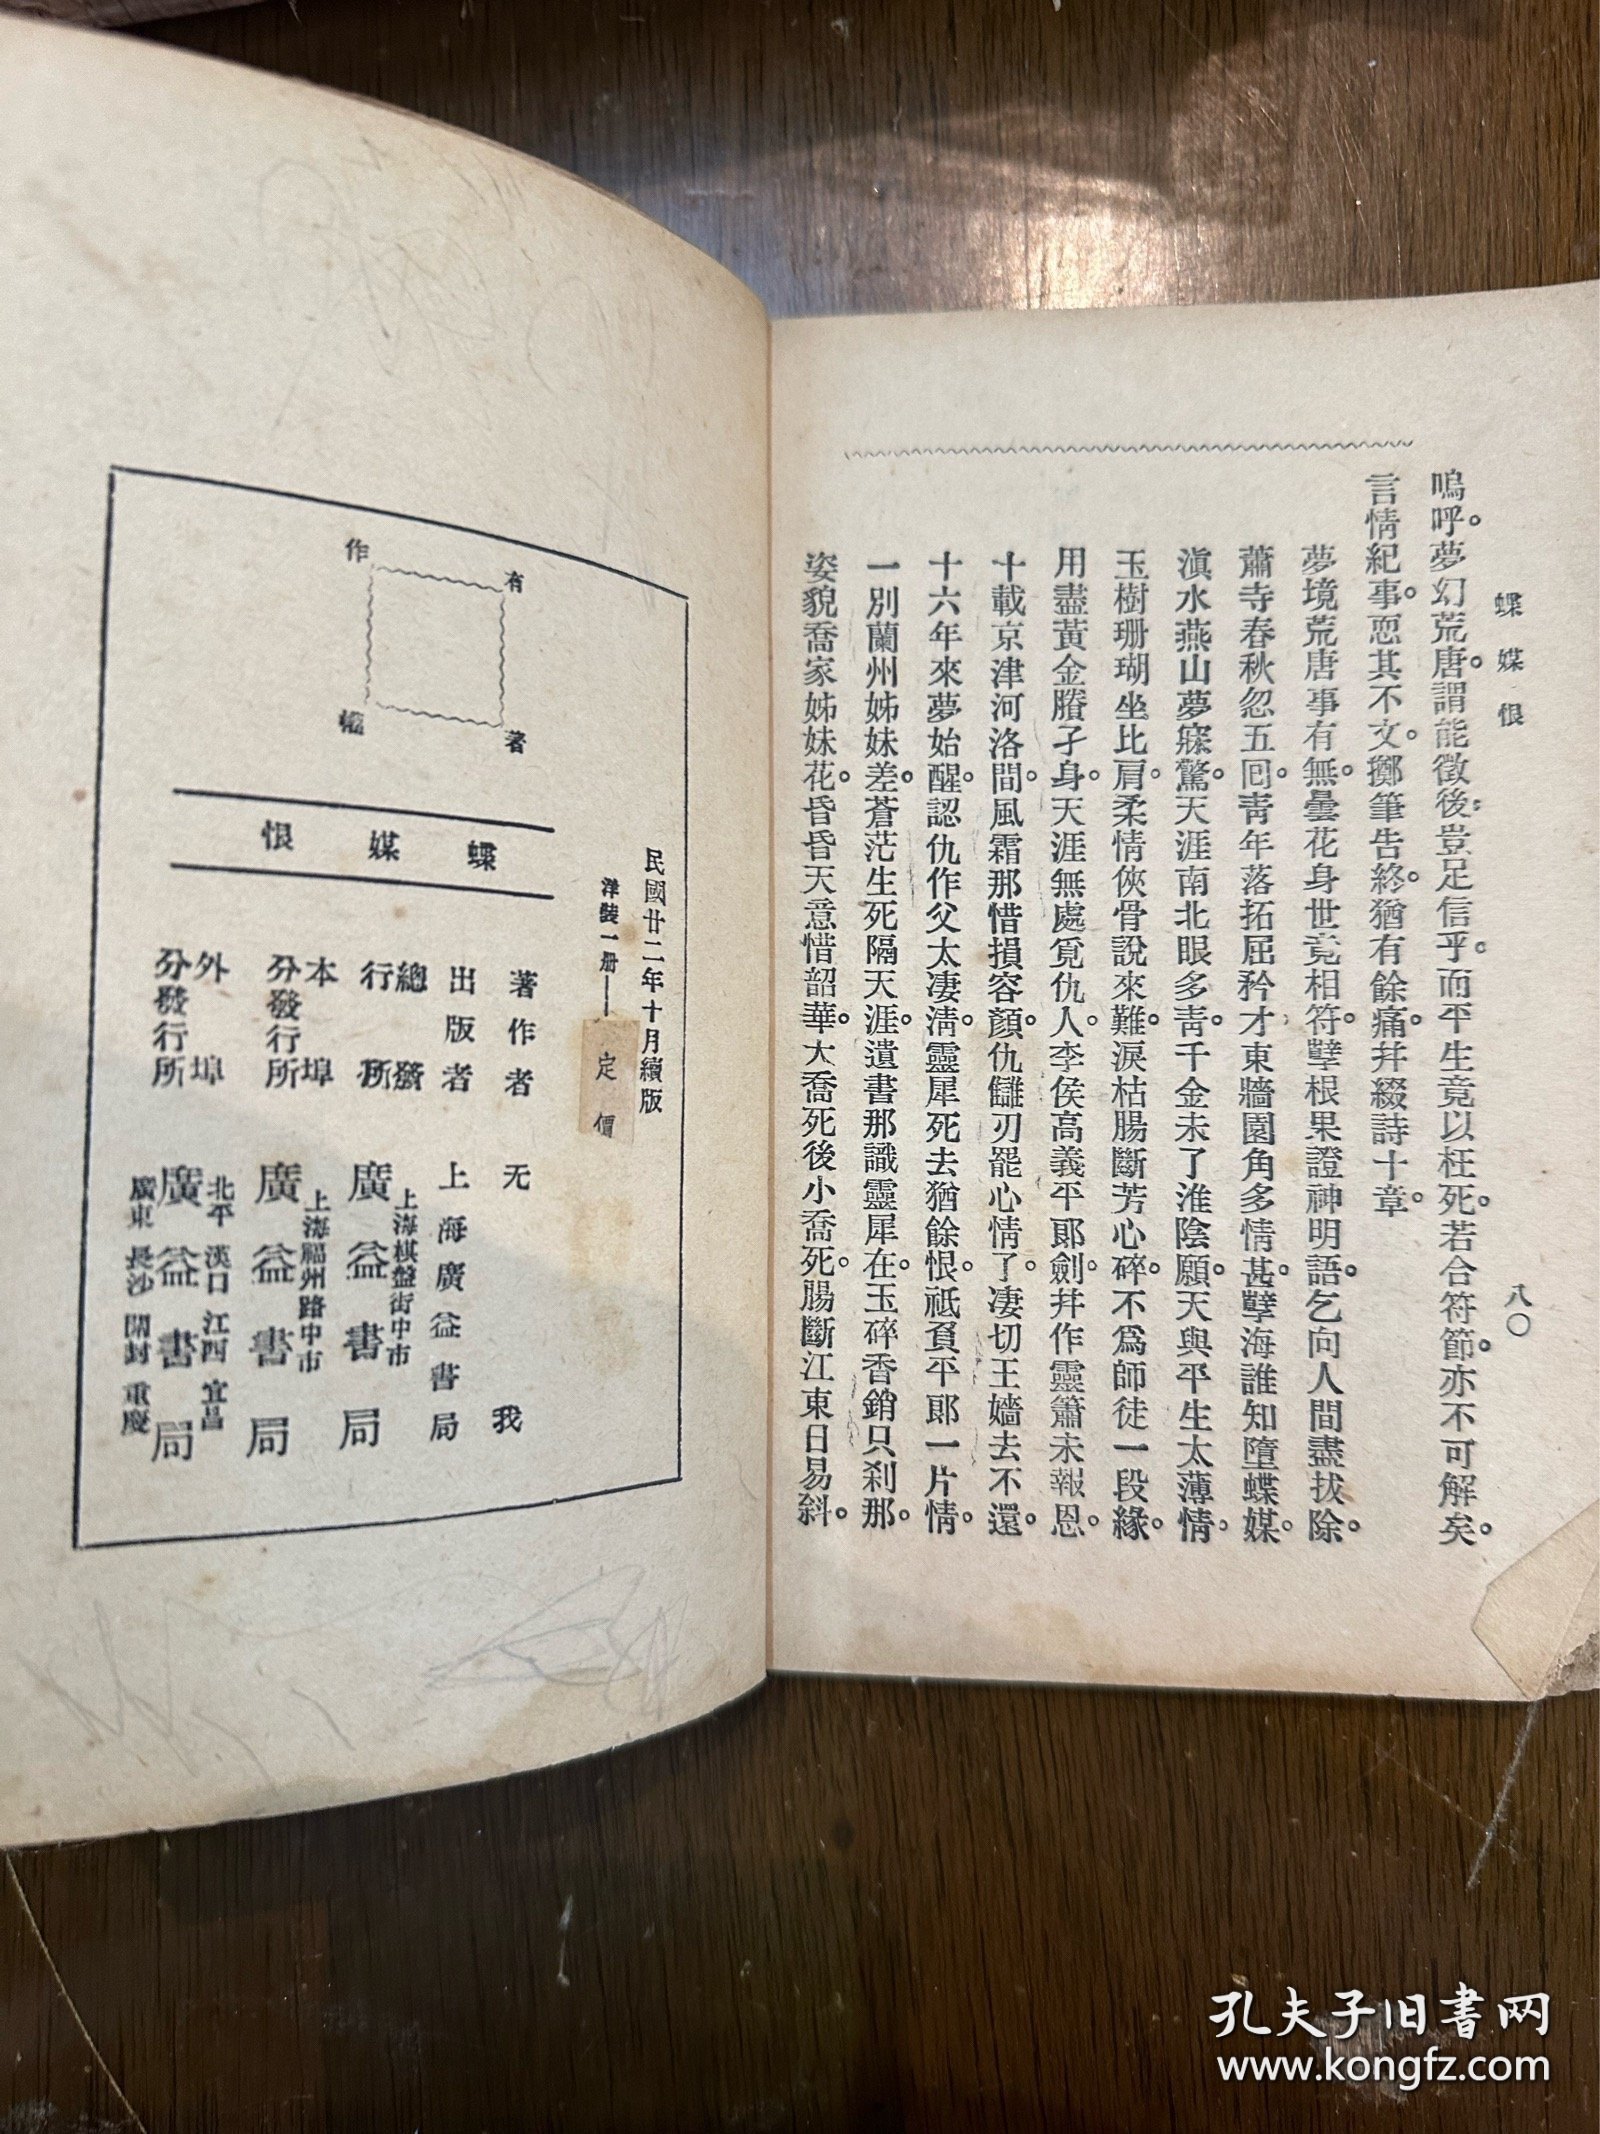 蝶媒恨
八〇
嗚呼。夢幻荒唐。謂能徵後。豈足信乎。而平生竟以枉死。若合符節。亦不可解矣。
言情紀事。恧其不文。擲筆告終。猶有餘痛。幷綴詩十章。
夢境荒唐事有無。曇花身世竟相符。孽根果證神明語。乞向人間盡拔除。
蕭寺春秋忽五囘。靑年落拓屈矜才。東牆園角多情甚。孽海誰知墮蝶媒。
滇水燕山夢寐驚。天涯南北眼多靑。千金未了淮陰願。天與平生太薄情。
玉樹珊瑚坐比肩。柔情俠骨說來難。淚枯腸斷芳心碎。不爲師徒一段緣。
用盡黃金賸孑身。天涯無處覓仇人。李侯高義平郞劍。幷作靈簫未報恩。
十載京津河洛間。風霜那惜損容顏。仇讎刃罷心情了。凄切王嬙去不還。
十六年來夢始醒。認仇作父太凄淸。靈犀死去猶餘恨。祗負平郞一片情。
一別蘭州姊妹差。蒼茫生死隔天涯。遺書那識靈犀在。玉碎香銷只刹那。
姿貌喬家姊妹花。昏昏天意惜韶華。大喬死後小喬死。腸斷江東日易斜。
有著
作權
民國廿二年十月續版
洋裝一册——定價
蝶媒恨
著作者 无我
出版者 上海廣益書局
總發行所 上海棋盤街中市 廣益書局
本埠分發行所 上海福州路中市 廣益書局
外埠分發行所 北平 漢口 江西 宜昌 廣益書局 廣東 長沙 開封 重慶
孔夫子旧书网
www.kongfz.com